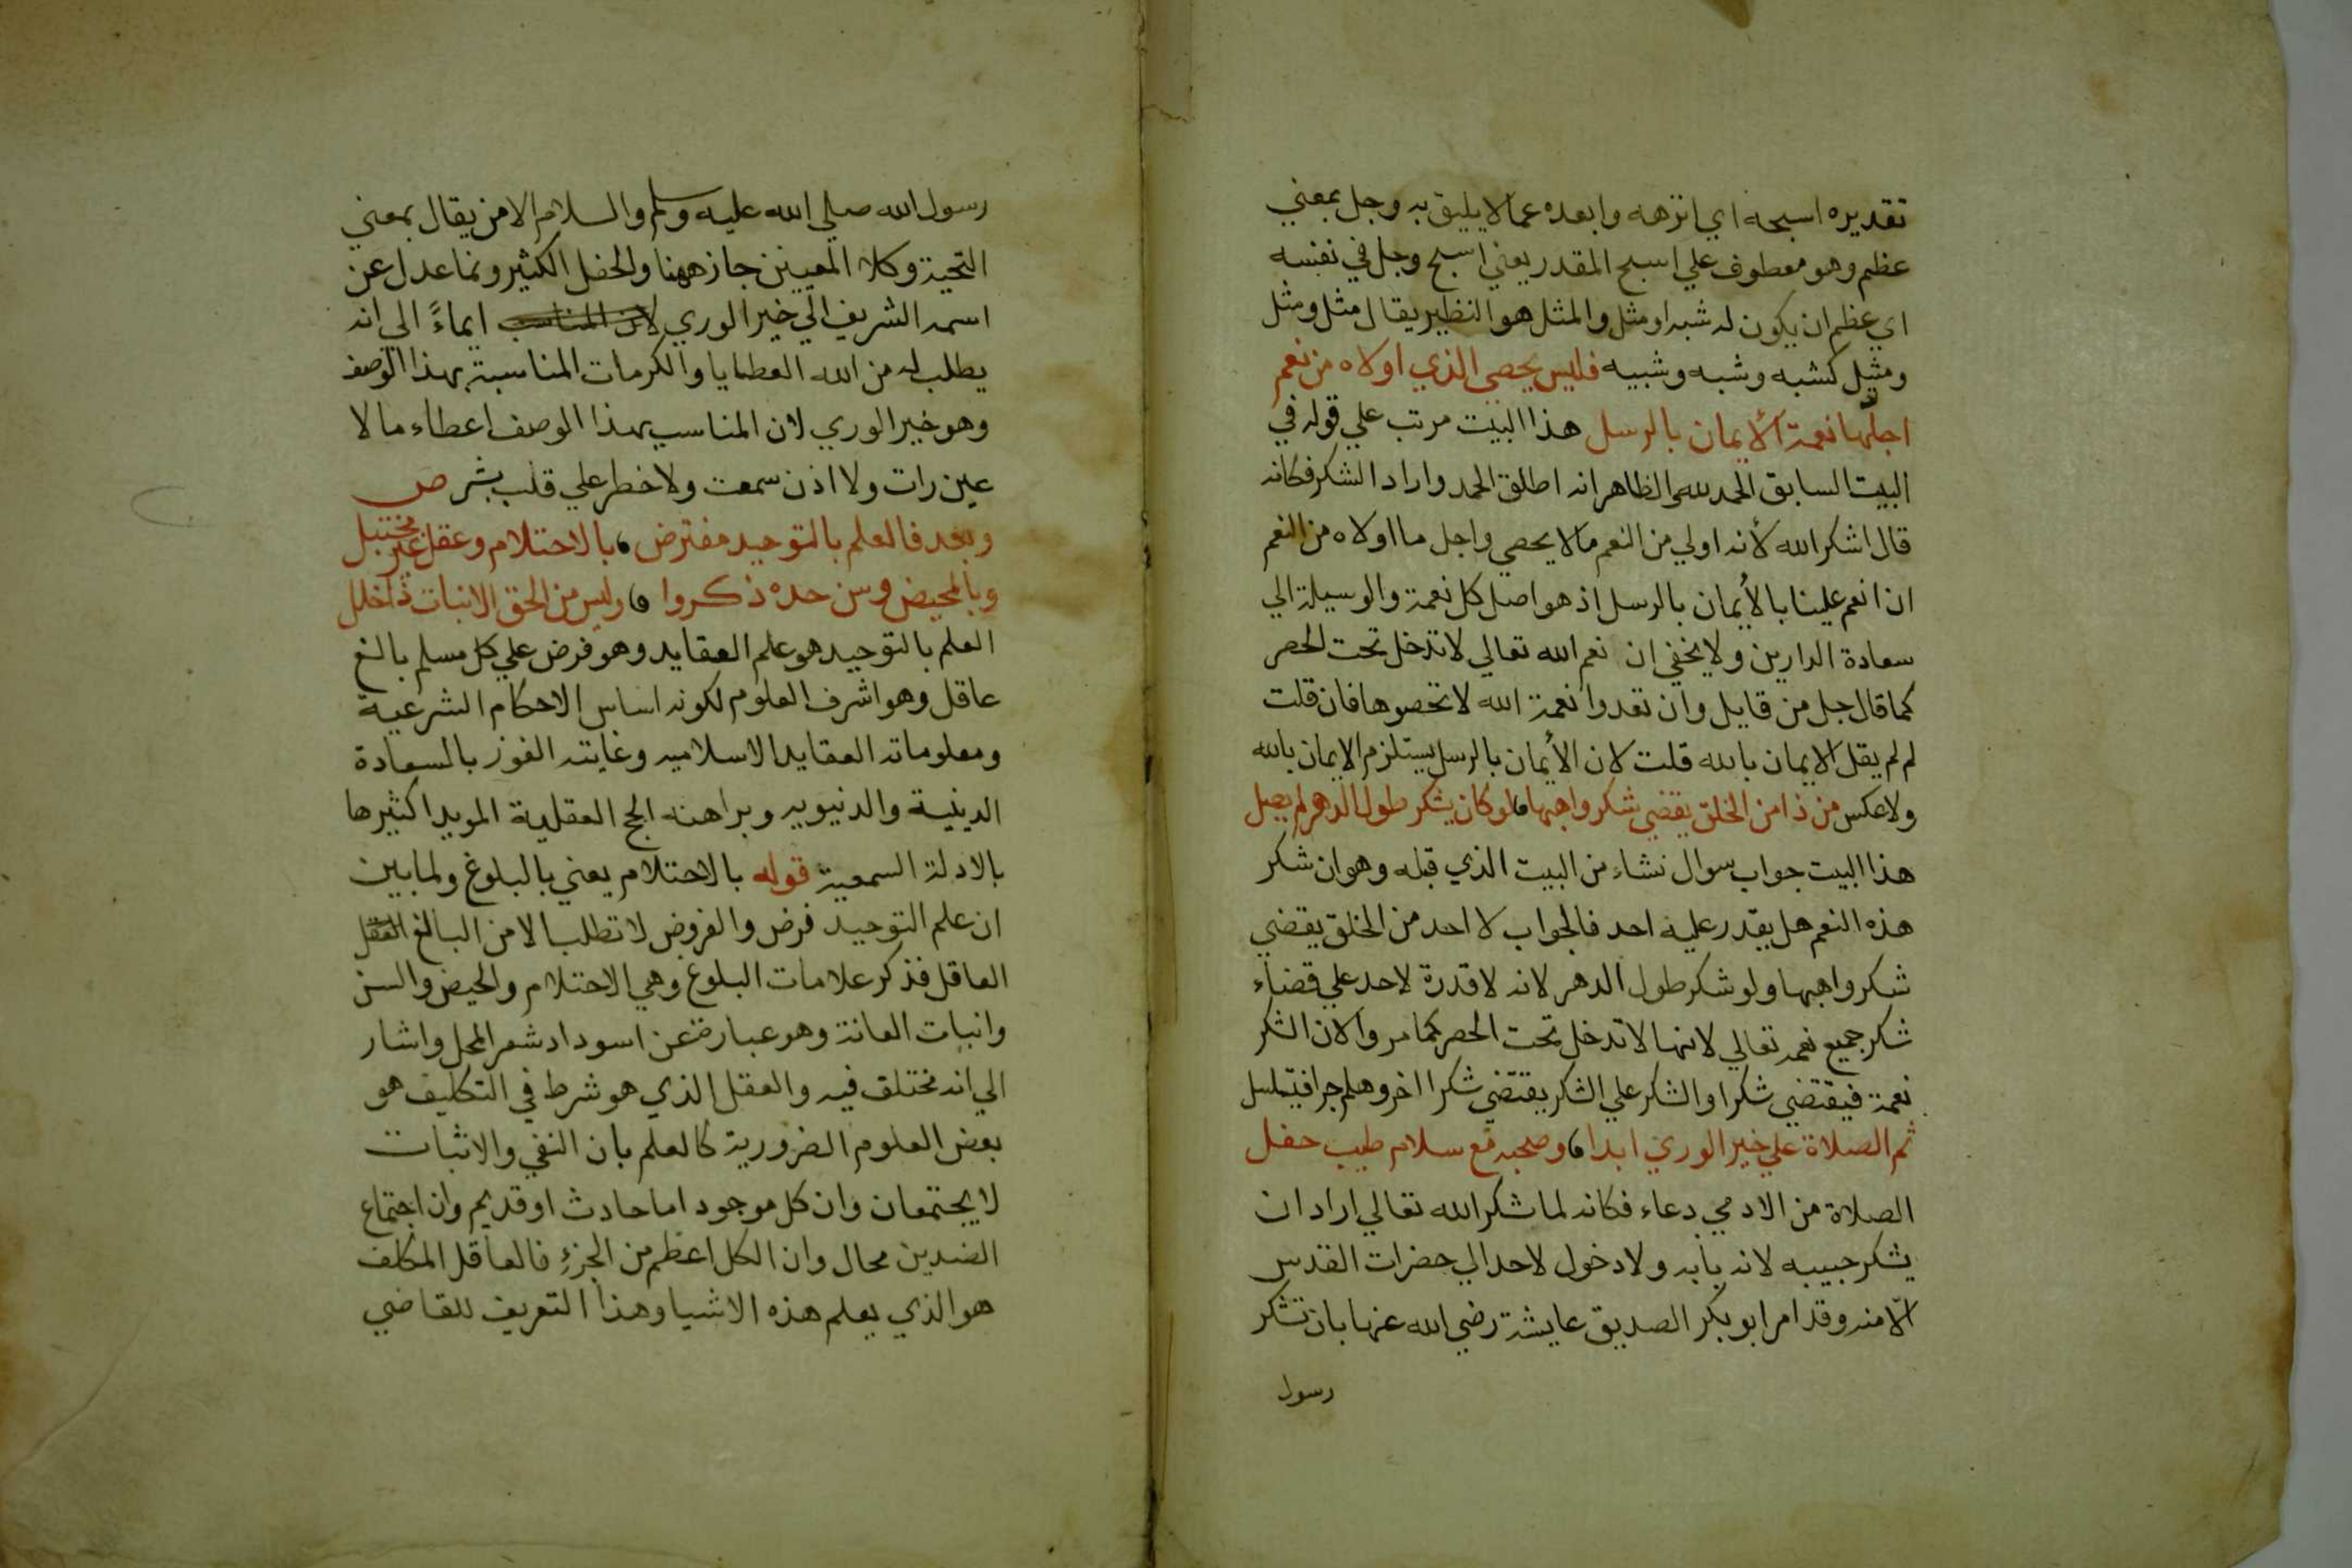 تقديره اسبحه اي انزهه وابعده عما لا يليق به وجل بمعني
عظم وهو معطوف علي اسبح المقدر يعني اسبح وجل في نفسه
اي عظم ان يكون له شبه او مثل والمثل هو النظير يقال مثل ومثل
ومثيل كشبه وشبه وشبيه فليس يحصي الذي اولاه من نعم
اجلها نعمة الأيمان بالرسل هذا البيت مرتب علي قوله في
البيت السابق الحمد لله والظاهر انه اطلق الحمد واراد الشكر فكانه
قال اشكر الله لأنه اولي من النعم مالا يحصي واجل ما اولاه من النعم
ان انعم علينا بالأيمان بالرسل اذ هو اصل كل نعمة والوسيلة الي
سعادة الدارين ولا يخفي ان نعم الله تعالي لا تدخل تحت الحصر
كما قال جل من قايل وان تعدوا نعمة الله لا تحصوها فان قلت
لم لم يقل الايمان بالله قلت لان الأيمان بالرسل يستلزم الايمان بالله
ولا عكس من ذا من الخلق يقضي شكر واهبها لو كان يشكر طول الدهر لم يصل
هذا البيت جواب سوال نشاء من البيت الذي قبله وهو ان شكر
هذه النعم هل يقدر عليه احد فالجواب لا احد من الخلق يقضي
شكر واهبها ولو شكر طول الدهر لانه لا قدرة لاحد علي قضاء
شكر جميع نعمه تعالي لانها لا تدخل تحت الحصر كما مر ولان الشكر
نعمة فيقتضي شكرا والشكر علي الشكر يقتضي شكرا اخر وهلم جرا فيتسلسل
ثم الصلاة علي خير الوري ابدا وصحبه مع سلام طيب حفل
الصلاة من الادمي دعاء فكانه لما شكر الله تعالي اراد ان
يشكر حبيبه لانه بابه ولا دخول لاحد الي حضرات القدس
الا منه وقد امر ابو بكر الصديق عايشة رضي الله عنها بان تشكر
رسول
رسول الله صلي الله عليه وسلم والسلام الامن يقال بمعني
التحية وكلا المعيين جاز ههنا والحفل الكثير ونما عدل عن
اسمه الشريف الي خير الوري لان المناسب ايماءً الي انه
يطلب له من الله العطايا والكرمات المناسبة بهذا الوصف
وهو خير الوري لان المناسب بهذا الوصف اعطاء مالا
عين رات ولا اذن سمعت ولا خطر علي قلب بشر ص
وبعد فالعلم بالتوحيد مفترض بالاحتلام وعقل غير مختبل
وبالمحيض وسن حده ذكروا وليس من الحق الانبات ذا خلل
العلم بالتوحيد هو علم العقايد وهو فرض علي كل مسلم بالغ
عاقل وهو اشرف العلوم لكونه اساس الاحكام الشرعية
ومعلوماته العقايد الاسلاميه وغايته الفوز بالسعادة
الدينية والدنيويه وبراهنه الحج العقلية المويد اكثيرها
بالادلة السمعية قوله بالاحتلام يعني بالبلوغ ولما بين
ان علم التوحيد فرض والفروض لا تطلب الا من البالغ العقل
العاقل فذكر علامات البلوغ وهي الاحتلام والحيض والسن
وانبات العانة وهو عبارة عن اسوداد شعر المحل واشار
الي انه مختلق فيه والعقل الذي هو شرط في التكليف هو
بعض العلوم الضرورية كالعلم بان النفي والاثبات
لا يجتمعان وان كل موجود اما حادث او قديم وان اجتماع
الضدين محال وان الكل اعظم من الجزءِ فالعاقل المكلف
هو الذي يعلم هذه الاشيا وهذا التعريف للقاضي